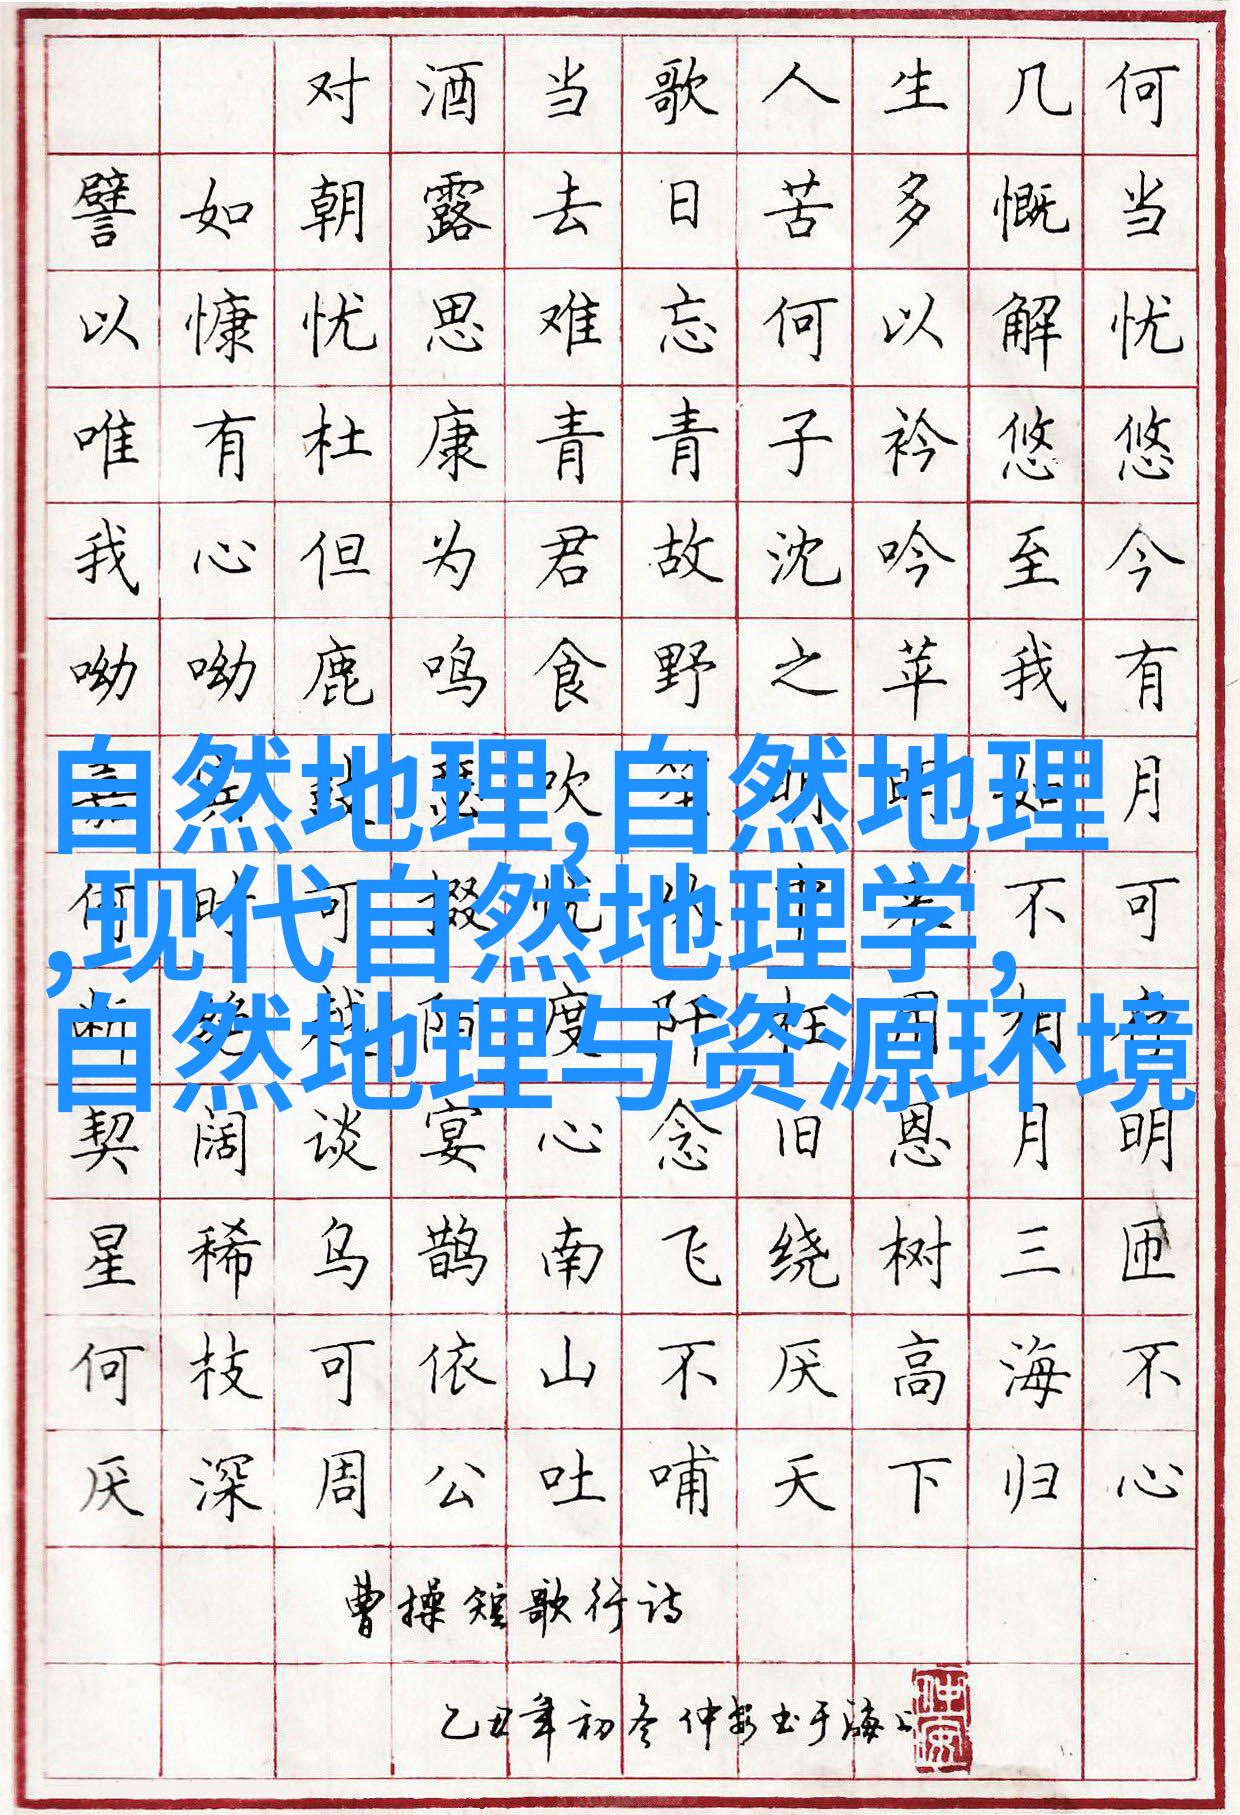 对酒当歌人生几何
譬如朝露去日苦多慨当
以慷忧思难忘何以解忧
唯有杜康青青子衿悠悠
我心但为君故沈吟至今
呦呦鹿鸣食野之苹我有
嘉宾鼓瑟吹笙明明如月
自然地理,自然地理
何时可掇忧从中来不可
,现代自然地理学,
断绝越陌度阡枉用相存
自然地理与资源环境
契阔谈宴心念旧恩月明
星稀乌鹊南飞绕树三匝
何枝可依山不厌高海不
厌深周公吐哺天下归心
曹操短歌行诗
乙丑年初冬仲安书于海上
仲安